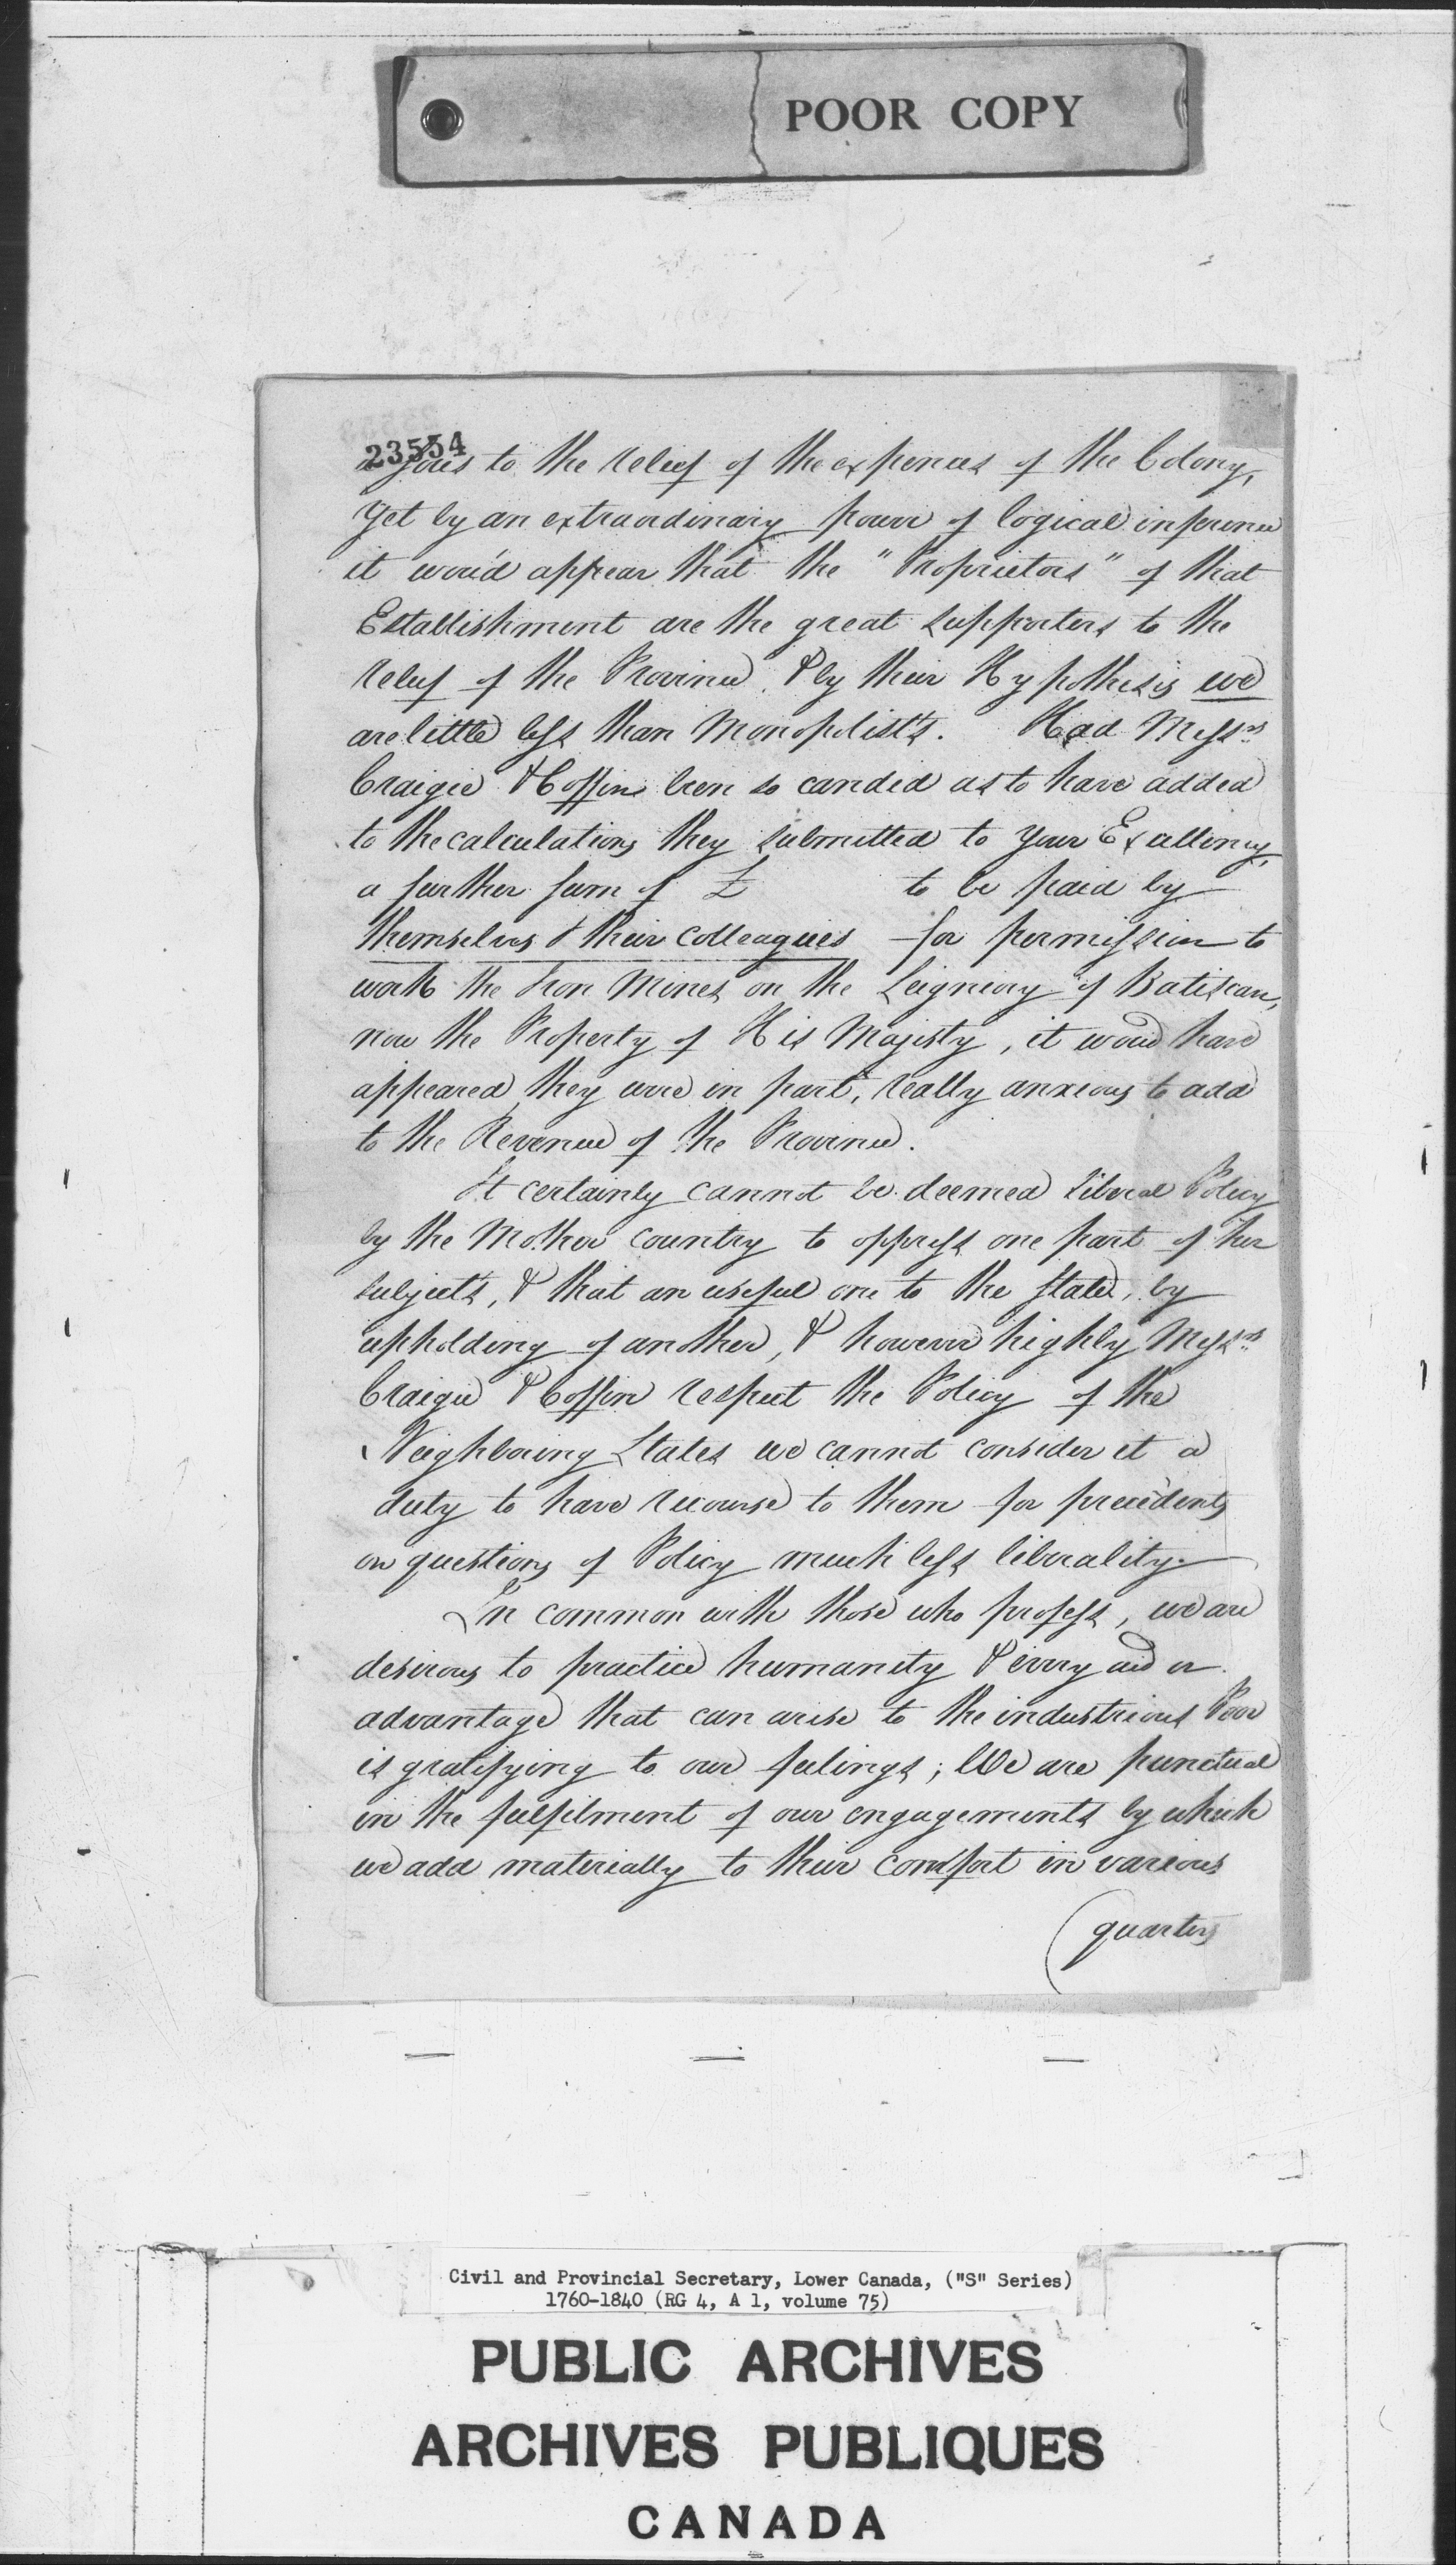 POOR COPY
23554
goes to the relief of the expences of the Colony,
Yet by an extraordinary power of logical inference
it wou'd appear that the "Proprietors" of that
Establishment are the great supporters to the
relief of the Province, & by their Hypothesis we
are little less than Monopolists. Had Messrs
Craigie & Coffin been so candid as to have added
to the calculations they submitted to Your Excellency,
a further sum of £ to be paid by
themselves & their colleagues - for permission to
work the Iron Mines on the Seigniory of Batiscan,
now the Property of His Majesty, it wou'd have
appeared they were in part, really anxious to add
to the Revenue of the Province.
It certainly cannot be deemed liberal Policy
by the Mother Country to oppress one part of her
subjects, & that an useful one to the State, by
upholding of another, & however highly Messrs
Craigie & Coffin respect the Policy of the
Neighbouring States we cannot consider it a
duty to have recourse to them for precedents
on questions of Policy much less liberality.
In common with those who profess, we are
desirous to practice humanity & every aid or
advantage that can arise to the industrious Poor
is gratifying to our feelings; We are punctual
in the fulfilment of our engagements by which
we add materially to their comfort in various
quarters
Civil and Provincial Secretary, Lower Canada, ("S" Series)
1760-1840 (RG 4, A 1, volume 75)
PUBLIC ARCHIVES
ARCHIVES PUBLIQUES
CANADA